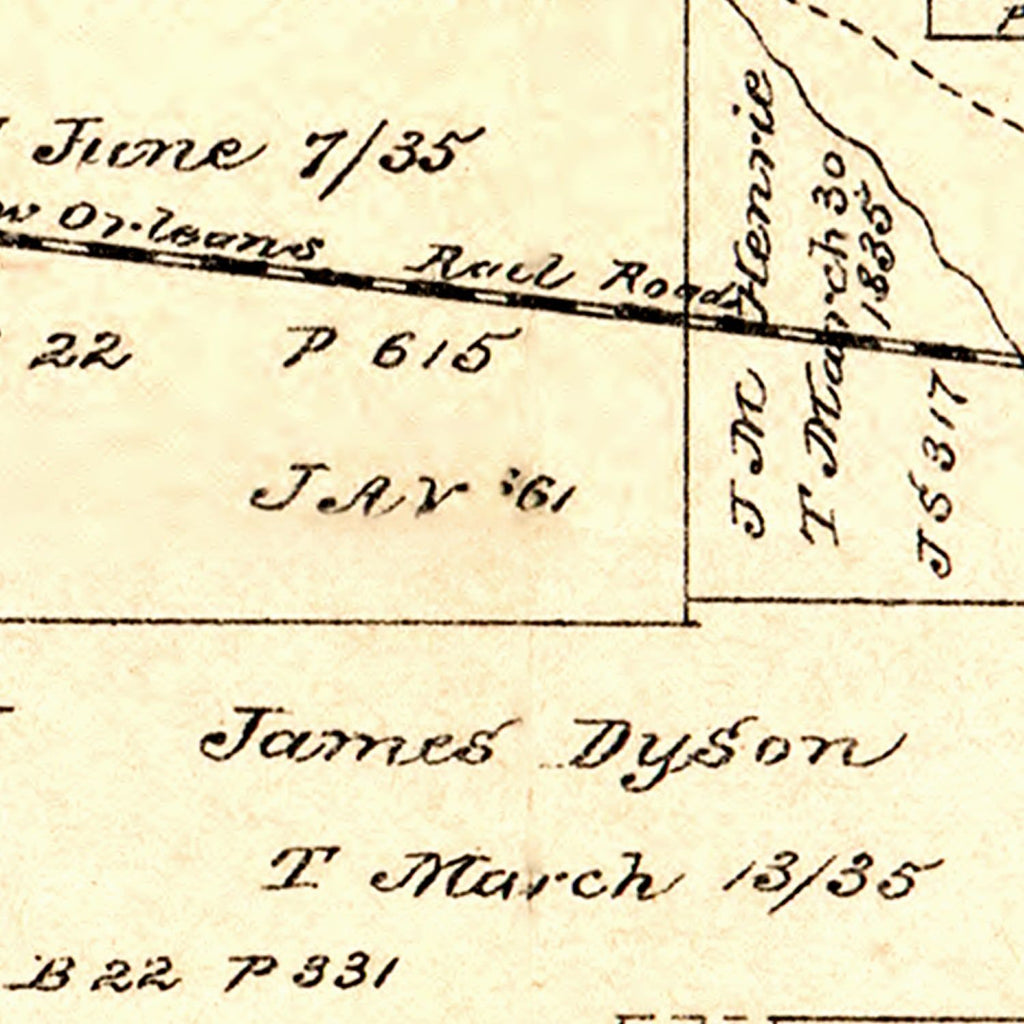 June 7/35
Orleans Rail Road
22 P 615
J A V :61
J M Henrie
T March 30
1835
J S 317
James Dyson
T March 13/35
B 22 P 331